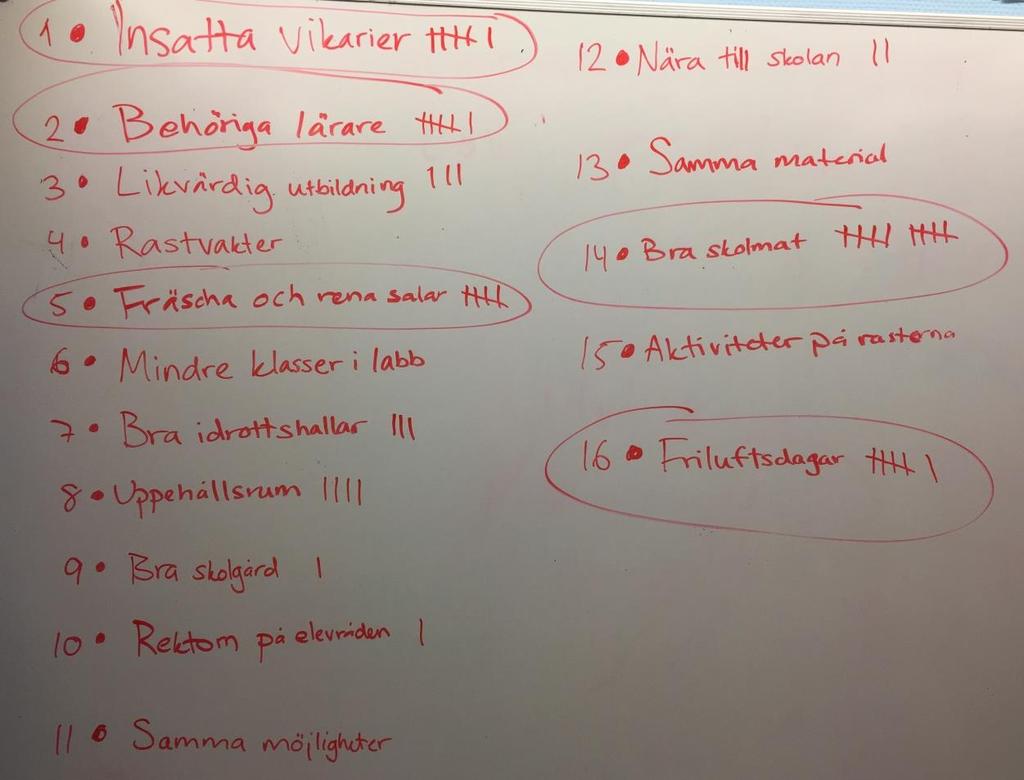 1 • Insatta vikarier 卌 I
2 • Behöriga lärare 卌 I
3 • Likvärdig utbildning III
4 • Rastvakter
5 • Fräscha och rena salar 卌
6 • Mindre klasser i labb
7 • Bra idrottshallar III
8 • Uppehållsrum IIII
9 • Bra skolgård I
10 • Rektorn på elevråden I
11 • Samma möjligheter
12 • Nära till skolan II
13 • Samma material
14 • Bra skolmat 卌 卌
15 • Aktiviteter på rasterna
16 • Friluftsdagar 卌 I